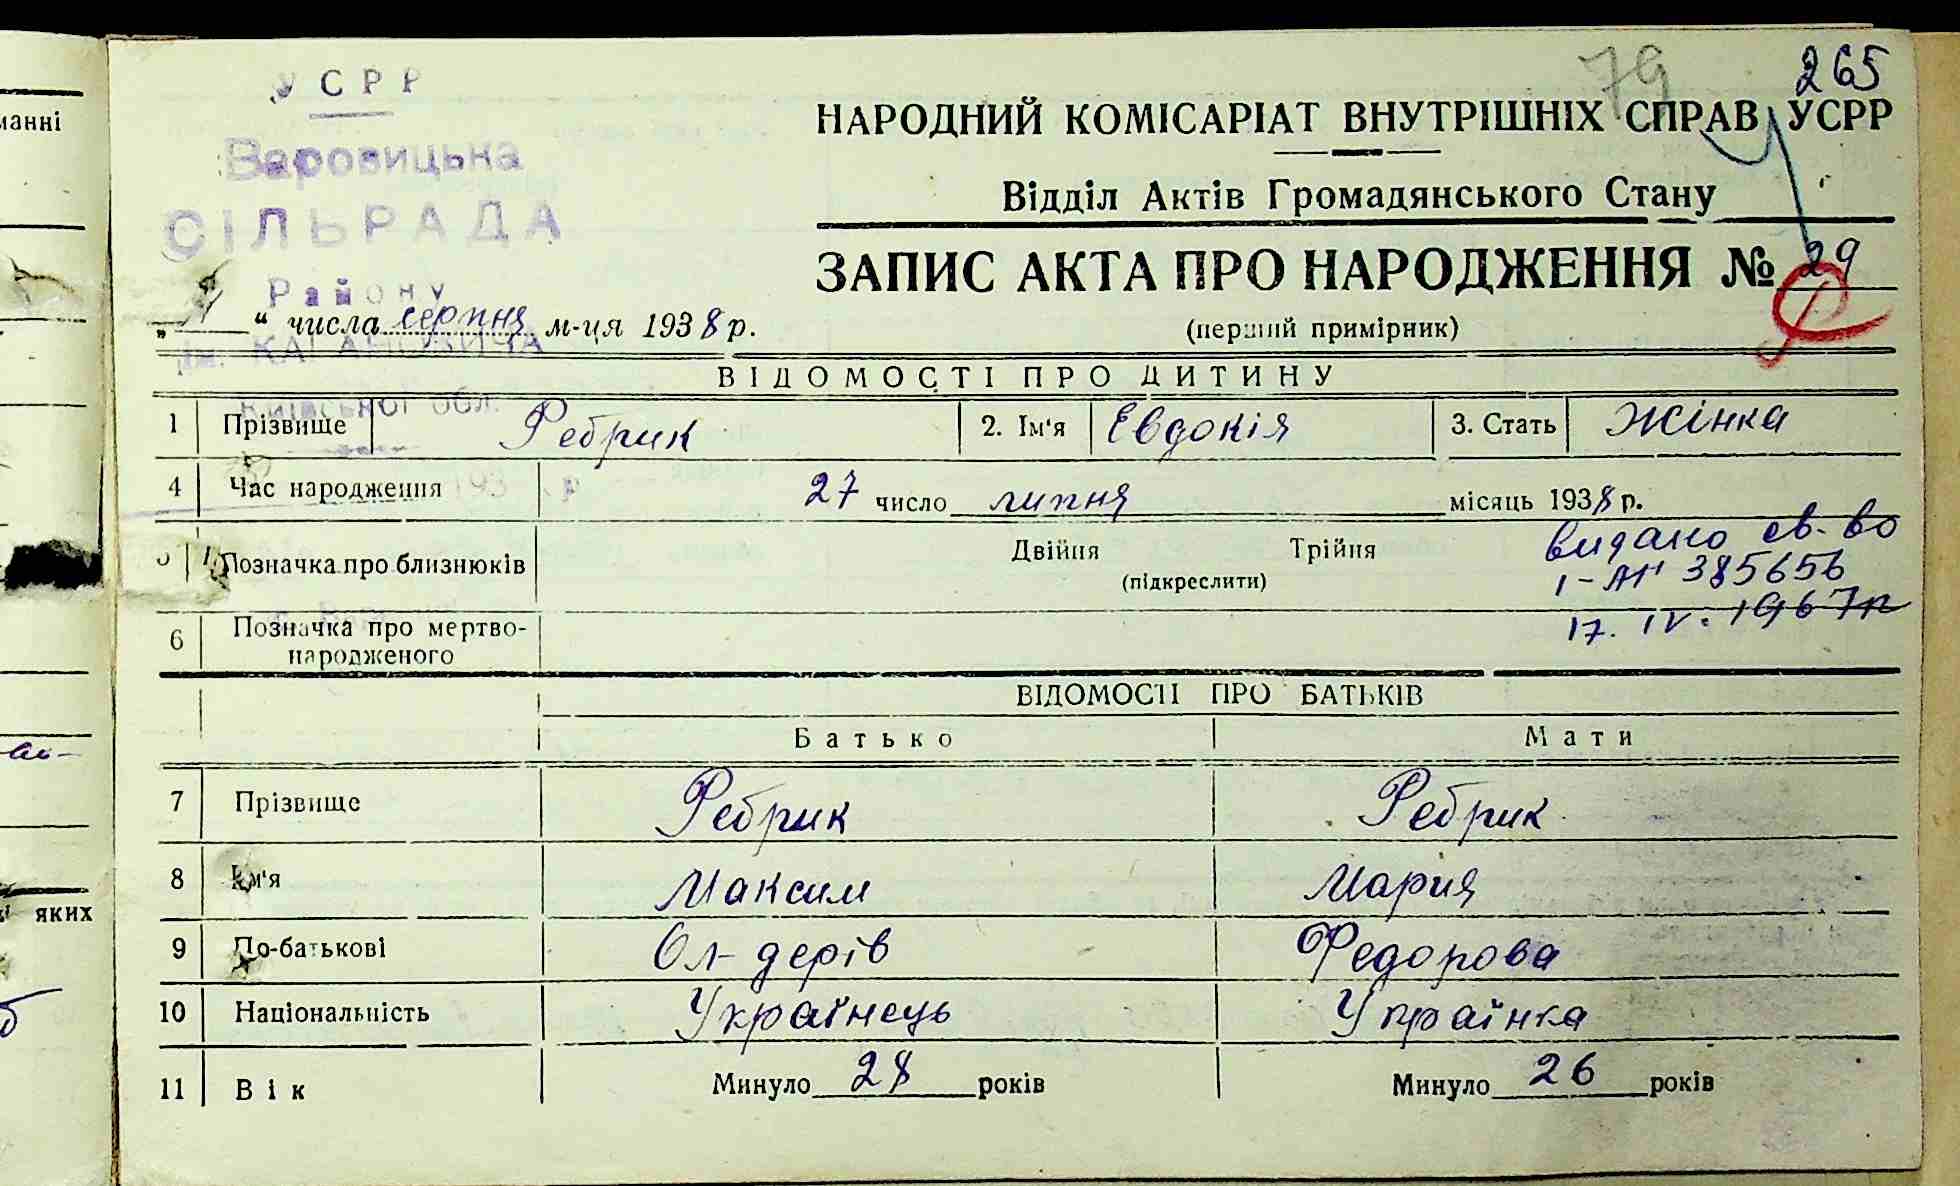 79 265
УСРР
Варовицька
СІЛЬРАДА
Району
ім. КАГАНОВИЧА
Київської обл.
193 р
НАРОДНИЙ КОМІСАРІАТ ВНУТРІШНІХ СПРАВ УСРР
Відділ Актів Громадянського Стану
ЗАПИС АКТА ПРО НАРОДЖЕННЯ № 29
(перший примірник)
„ “ числа серпня м-ця 1938 р.
ВІДОМОСТІ ПРО ДИТИНУ
1 Прізвище Ребрик 2. Ім'я Евдокія 3. Стать Жінка
4 Час народження 27 число липня місяць 1938 р.
5 Позначка про близнюків Двійня Трійня
(підкреслити)
видано св-во
385656
17. IV. 1967р
6 Позначка про мертво-
народженого
ВІДОМОСТІ ПРО БАТЬКІВ
Батько Мати
7 Прізвище Ребрик Ребрик
8 Ім'я Максим Мария
9 По-батькові Ол-дерів Федорова
10 Національність Українець Українка
11 Вік Минуло 28 років Минуло 26 років
манні
яких